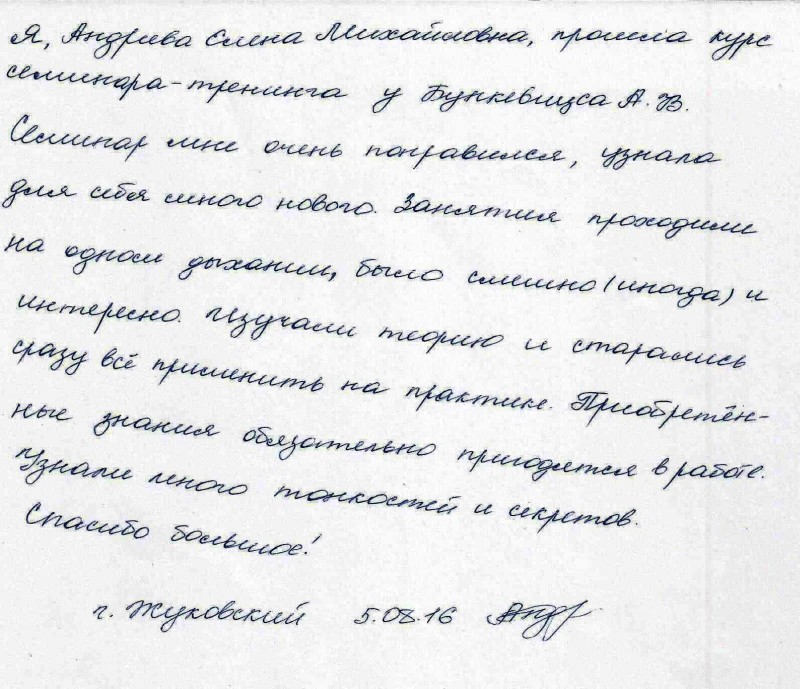 Я, Андреева Елена Михайловна, прошла курс
семинара-тренинга у Бункевициса А.В.
Семинар мне очень понравился, узнала
для себя много нового. Занятия проходили
на одном дыхании, было смешно (иногда) и
интересно. Изучали теорию и старались
сразу всё применить на практике. Приобретён-
ные знания обязательно пригодятся в работе.
Узнали много тонкостей и секретов.
Спасибо большое!
г. Жуковский 5.08.16